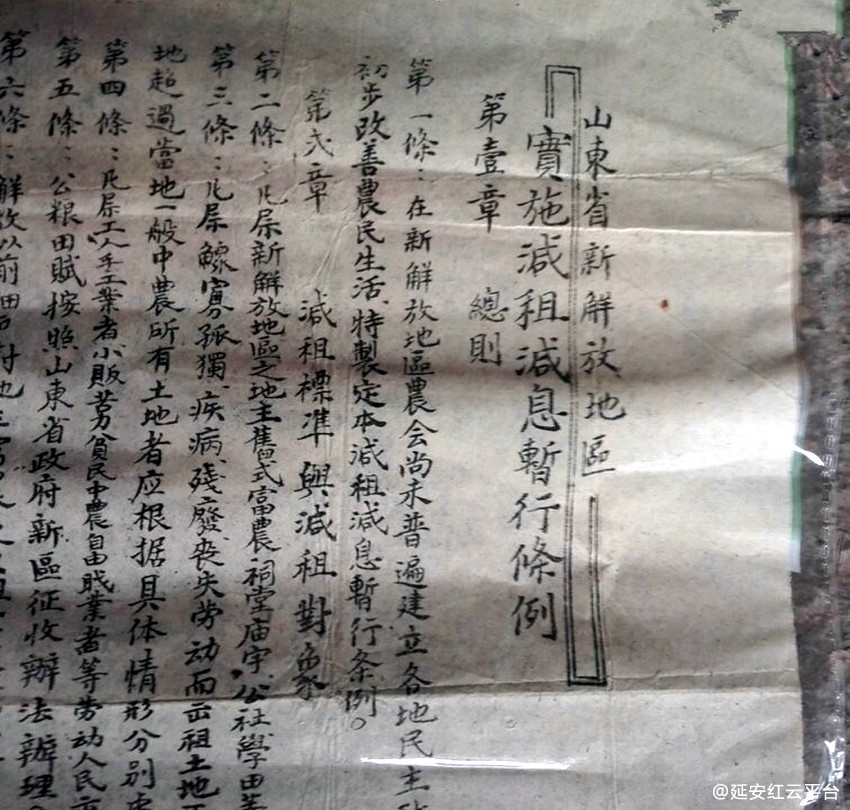 山東省新解放地區
實施減租減息暫行條例
第壹章 總則
第一條：在新解放地區農会尚未普遍建立各地民主
初步改善農民生活、特製定本減租減息暫行条例。
第弍章 減租標準與減租對象
第二條：凡屬新解放地區之地主舊式富農、祠堂庙宇、公社學田
第三條：凡屬鰥寡孤獨、疾病、殘廢丧失劳动而出租土地
地超過當地一般中農所有土地者应根据具体情形分别
第四條：凡屬工人手工業者小販劳苦貧民中農自由職業者等劳动人民
第五條：公粮田賦按照山東省政府新區征收辦法辦理。
第六條：解放以前
@延安红云平台